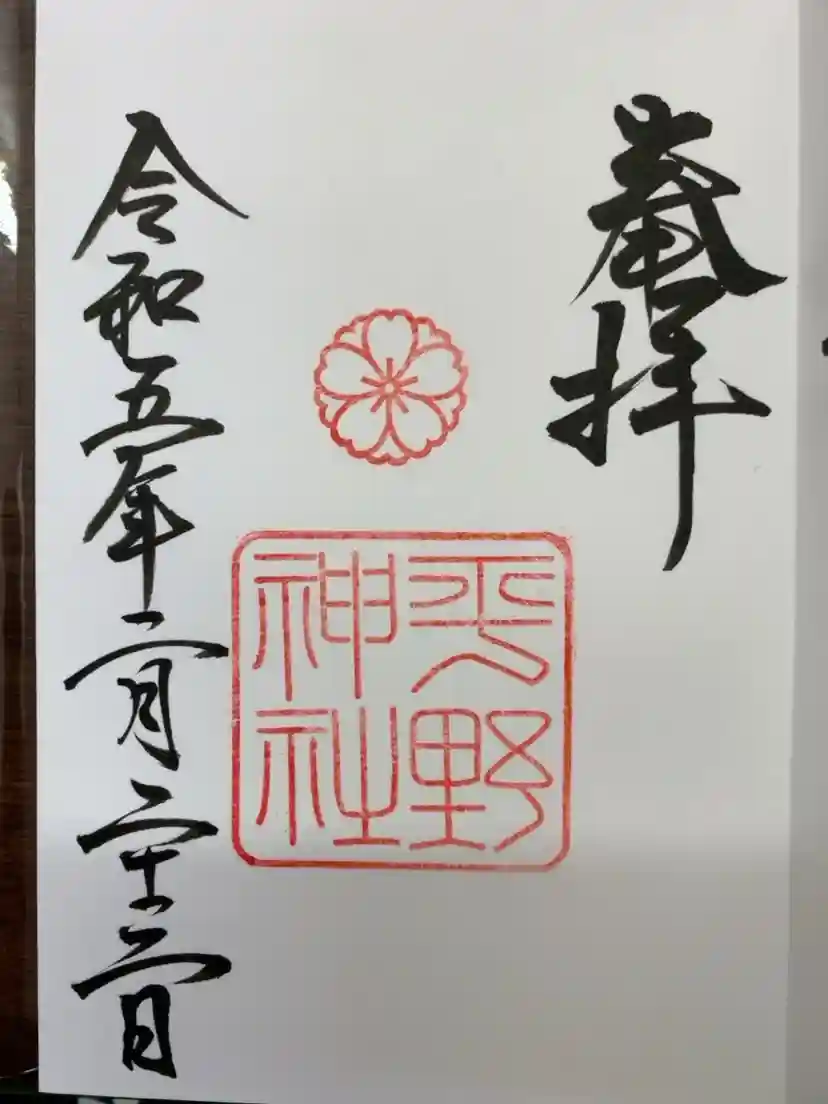 奉拝
平野神社
令和五年二月二十二日